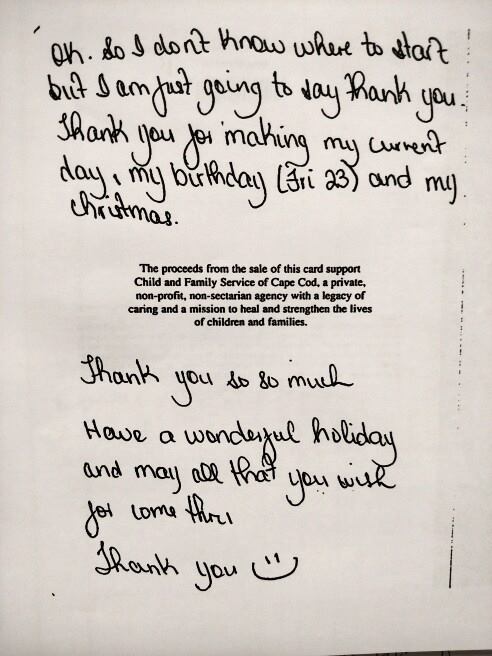 Oh. So I don't know where to start
but I am just going to say thank you.
Thank you for making my current
day, my birthday (Fri 23) and my
christmas.
The proceeds from the sale of this card support
Child and Family Service of Cape Cod, a private,
non-profit, non-sectarian agency with a legacy of
caring and a mission to heal and strengthen the lives
of children and families.
Thank you so so much
Have a wonderful holiday
and may all that you wish
for come thru
Thank you